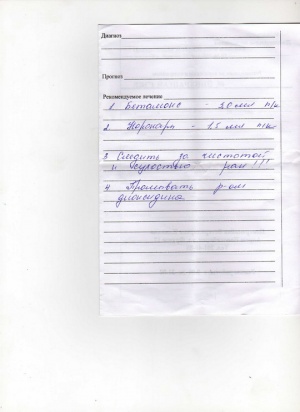 Диагноз
Прогноз
Рекомендуемое лечение
1 Бетамокс - 2,0 мл п/к
2 - 1,5 мл п/к
3 Следить за чистотой
и сухостью ран !!!
4 Промывать р-ом
диоксидина